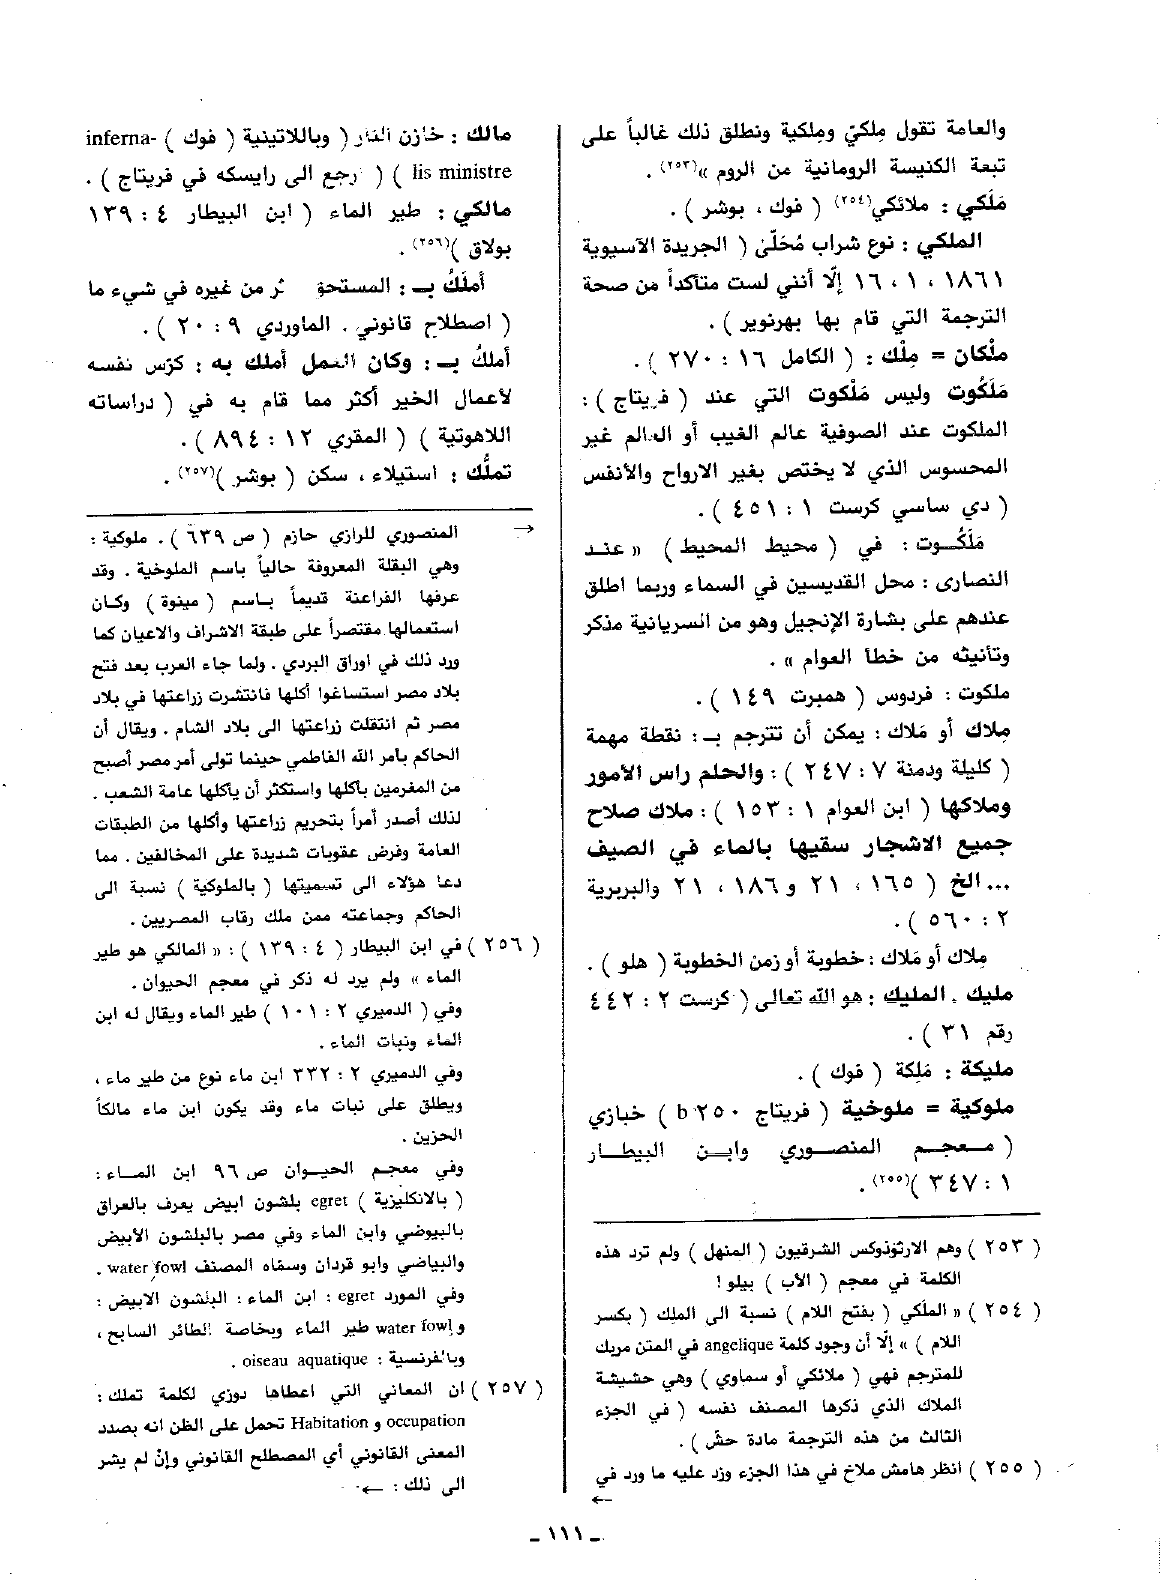 والعامة تقول مِلكيّ ومِلكية ونطلق ذلك غالباً على
تبعة الكنيسة الرومانية من الروم »(٢٥٣) .
مَلَكي : ملائكي(٢٥٤) ( فوك ، بوشر ) .
الملكي : نوع شراب مُحَلّىٰ ( الجريدة الآسيوية
١٨٦١ ، ١ ، ١٦ إلّا أنني لست متأكداً من صحة
الترجمة التي قام بها بهرنوير ) .
مِلْكان = مِلْك : ( الكامل ١٦ : ٢٧٠ ) .
مَلَكُوت وليس مَلْكوت التي عند ( فريتاج ) :
الملكوت عند الصوفية عالم الغيب أو العالم غير
المحسوس الذي لا يختص بغير الارواح والأنفس
( دي ساسي كرست ١ : ٤٥١ ) .
مَلَكُوت : في ( محيط المحيط ) « عند
النصارى : محل القديسين في السماء وربما اطلق
عندهم على بشارة الإنجيل وهو من السريانية مذكر
وتأنيثه من خطأ العوام » .
ملكوت : فردوس ( همبرت ١٤٩ ) .
مِلاك أو مَلاك : يمكن أن تترجم بـ : نقطة مهمة
( كليلة ودمنة ٧ : ٢٤٧ ) : والحلم راس الأمور
وملاكها ( ابن العوام ١ : ١٥٣ ) : ملاك صلاح
جميع الاشجار سقيها بالماء في الصيف
... الخ ( ١٦٥ ، ٢١ و ١٨٦ ، ٢١ والبربرية
٢ : ٥٦٠ ) .
مِلاك أو مَلاك : خطوبة أو زمن الخطوبة ( هلو ) .
مليك . المليك : هو الله تعالى ( كرست ٢ : ٤٤٢
رقم ٣١ ) .
مليكة : مَلِكة ( فوك ) .
ملوكية = ملوخية ( فريتاج ٢٥٠ b ) خبازي
( معجم المنصوري وابن البيطار
١ : ٣٤٧ )(٢٥٥) .
( ٢٥٣ ) وهم الارثوذوكس الشرقيون ( المنهل ) ولم ترد هذه
الكلمة في معجم ( الأب ) بيلو !
( ٢٥٤ ) « الملَكي ( بفتح اللام ) نسبة الى الملِك ( بكسر
اللام ) » إلّا أن وجود كلمة angelique في المتن مربك
للمترجم فهي ( ملائكي أو سماوي ) وهي حشيشة
الملاك الذي ذكرها المصنف نفسه ( في الجزء
الثالث من هذه الترجمة مادة حشّ ) .
( ٢٥٥ ) انظر هامش ملاخ في هذا الجزء وزد عليه ما ورد في
←
مالك : خازن النار ( وباللاتينية ( فوك ) inferna-
lis ministre ) ( رجع الى رايسكه في فريتاج ) .
مالكي : طير الماء ( ابن البيطار ٤ : ١٣٩
بولاق )(٢٥٦) .
أملَكُ بـ : المستحق ثر من غيره في شيء ما
( اصطلاح قانوني . الماوردي ٩ : ٢٠ ) .
أملكُ بـ : وكان العمل أملك به : كرّس نفسه
لأعمال الخير أكثر مما قام به في ( دراساته
اللاهوتية ) ( المقري ١٢ : ٨٩٤ ) .
تملُّك : استيلاء ، سكن ( بوشر )(٢٥٧) .
→ المنصوري للرازي حازم ( ص ٦٣٩ ) . ملوكية :
وهي البقلة المعروفة حالياً باسم الملوخية . وقد
عرفها الفراعنة قديماً باسم ( مينوة ) وكان
استعمالها مقتصراً على طبقة الاشراف والاعيان كما
ورد ذلك في اوراق البردي . ولما جاء العرب بعد فتح
بلاد مصر استساغوا أكلها فانتشرت زراعتها في بلاد
مصر ثم انتقلت زراعتها الى بلاد الشام . ويقال أن
الحاكم بأمر الله الفاطمي حينما تولى أمر مصر أصبح
من المغرمين بأكلها واستكثر أن يأكلها عامة الشعب .
لذلك أصدر أمراً بتحريم زراعتها وأكلها من الطبقات
العامة وفرض عقوبات شديدة على المخالفين . مما
دعا هؤلاء الى تسميتها ( بالملوكية ) نسبة الى
الحاكم وجماعته ممن ملك رقاب المصريين .
( ٢٥٦ ) في ابن البيطار ( ٤ : ١٣٩ ) : « المالكي هو طير
الماء » ولم يرد له ذكر في معجم الحيوان .
وفي ( الدميري ٢ : ١٠١ ) طير الماء ويقال له ابن
الماء ونبات الماء .
وفي الدميري ٢ : ٣٣٢ ابن ماء نوع من طير ماء ،
ويطلق على نبات ماء وقد يكون ابن ماء مالكاً
الحزين .
وفي معجم الحيوان ص ٩٦ ابن الماء :
( بالانكليزية ) egret بلشون ابيض يعرف بالعراق
بالبيوضي وابن الماء وفي مصر بالبلشون الأبيض
والبياضي وابو قردان وسمّاه المصنف water fowl .
وفي المورد egret : ابن الماء : البلشون الابيض :
و water fowl طير الماء وبخاصة الطائر السابح ،
وبالفرنسية : oiseau aquatique .
( ٢٥٧ ) ان المعاني التي اعطاها دوزي لكلمة تملك :
occupation و Habitation تحمل على الظن انه بصدد
المعنى القانوني أي المصطلح القانوني وإنّ لم يشر
الى ذلك : ←
ـ ١١١ ـ